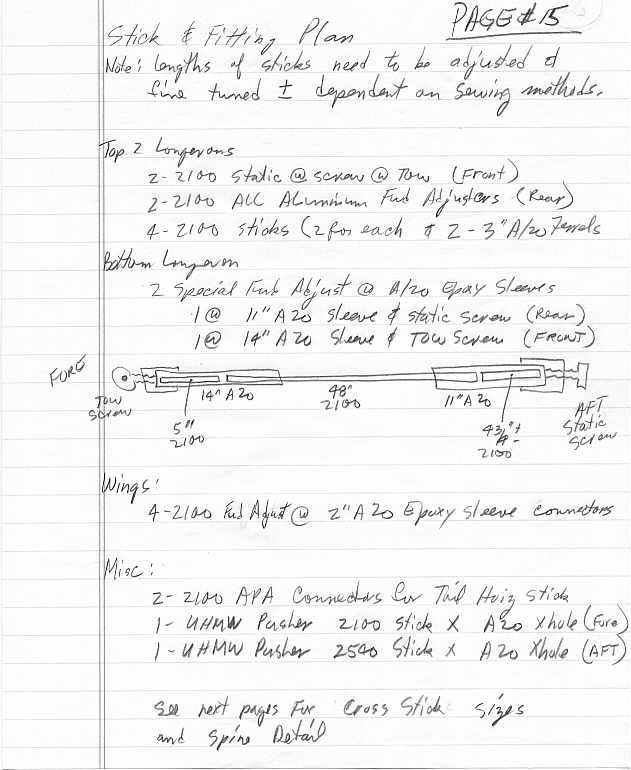 PAGE # 15
Stick & Fitting Plan
Note: Lengths of sticks need to be adjusted &
fine tuned ± dependent on sewing methods.
Top 2 Longerons
2-2100 Static @ screw @ Tow (Front)
2-2100 ALL Aluminum Fwd Adjusters (Rear)
4-2100 sticks (2 for each & 2-3" A/20 Ferrels
Bottom Longeron
2 Special Adjust @ A/20 Epoxy Sleeves
1 @ 11" A20 Sleeve & static screw (Rear)
1 @ 14" A20 Sleeve & Tow Screw (FRONT)
FORE
TOW
SCREW
14" A20
5"
2100
48"
2100
11" A20
4 3/4" ±
2100
AFT
Static
Screw
Wings:
4-2100 Adjust @ 2" A20 Epoxy Sleeve connectors
Misc:
2-2100 APA Connectors for Tail Horiz Stick
1-UHMW Pusher 2100 Stick X A20 Xhole (Fore)
1-UHMW Pusher 2540 Stick X A20 Xhole (AFT)
See next pages For Cross Stick sizes
and Spine Detail